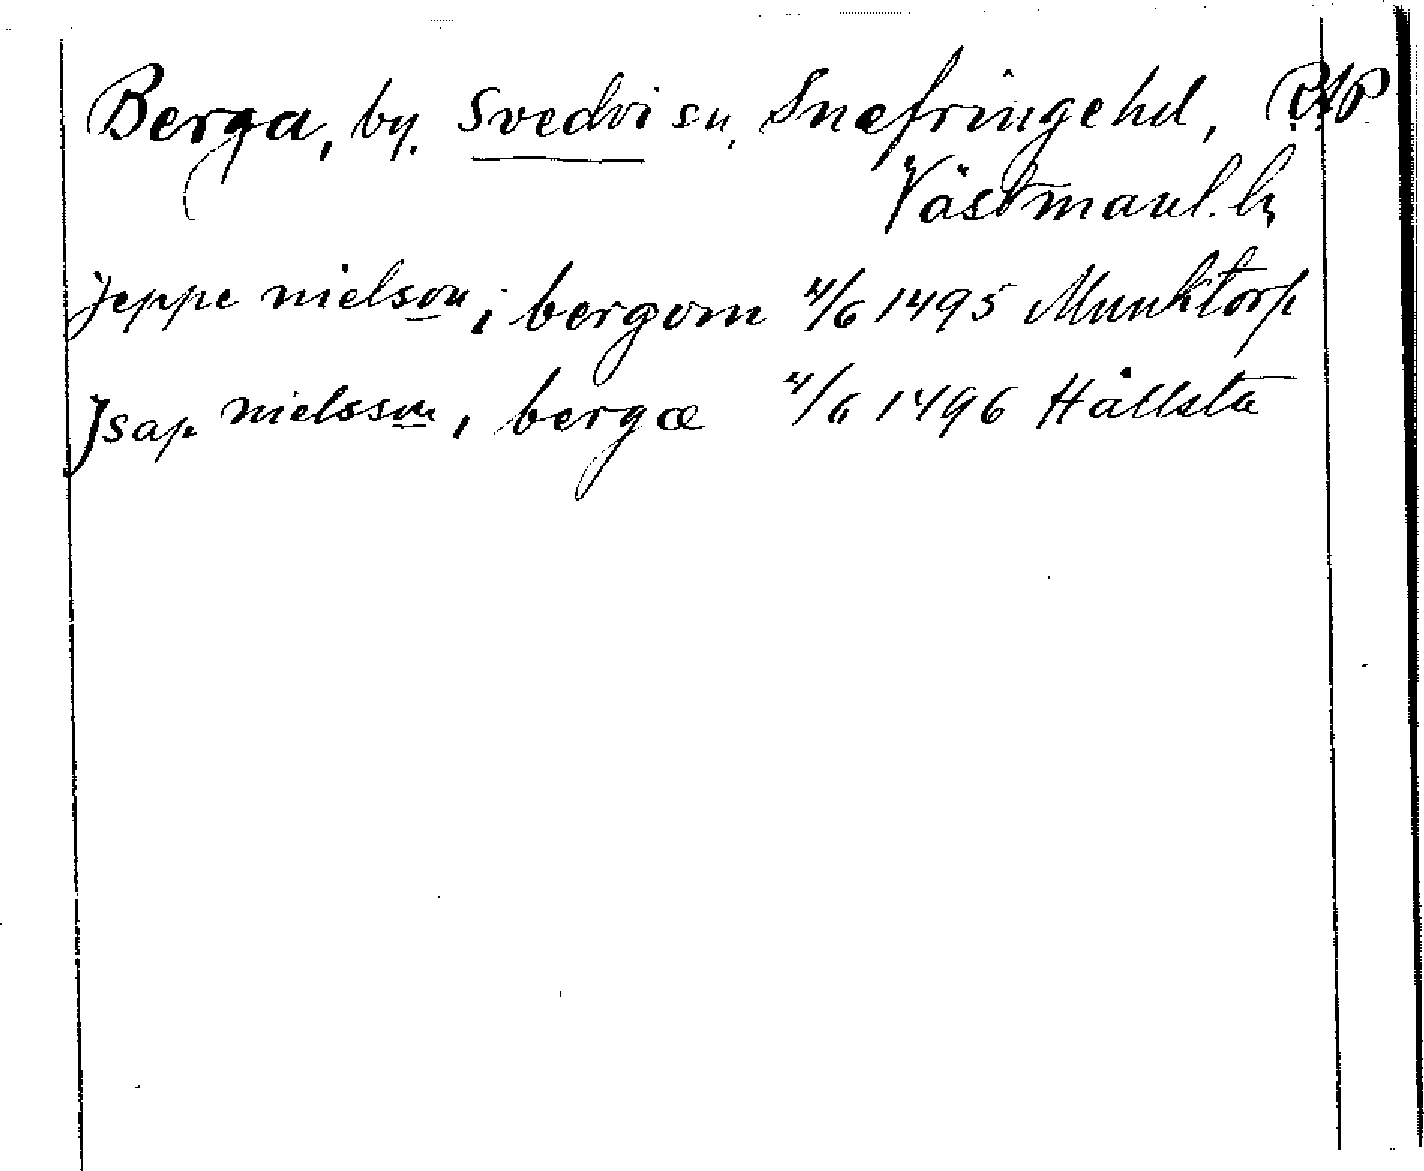 Berga, by. Svedvi sn, Snefringe hd, RAP
Västmanl. ln
jeppe nielson, i bergom 4/6 1495 Munktorp
Jsap nielsson, i bergæ 4/6 1496 Hållsta